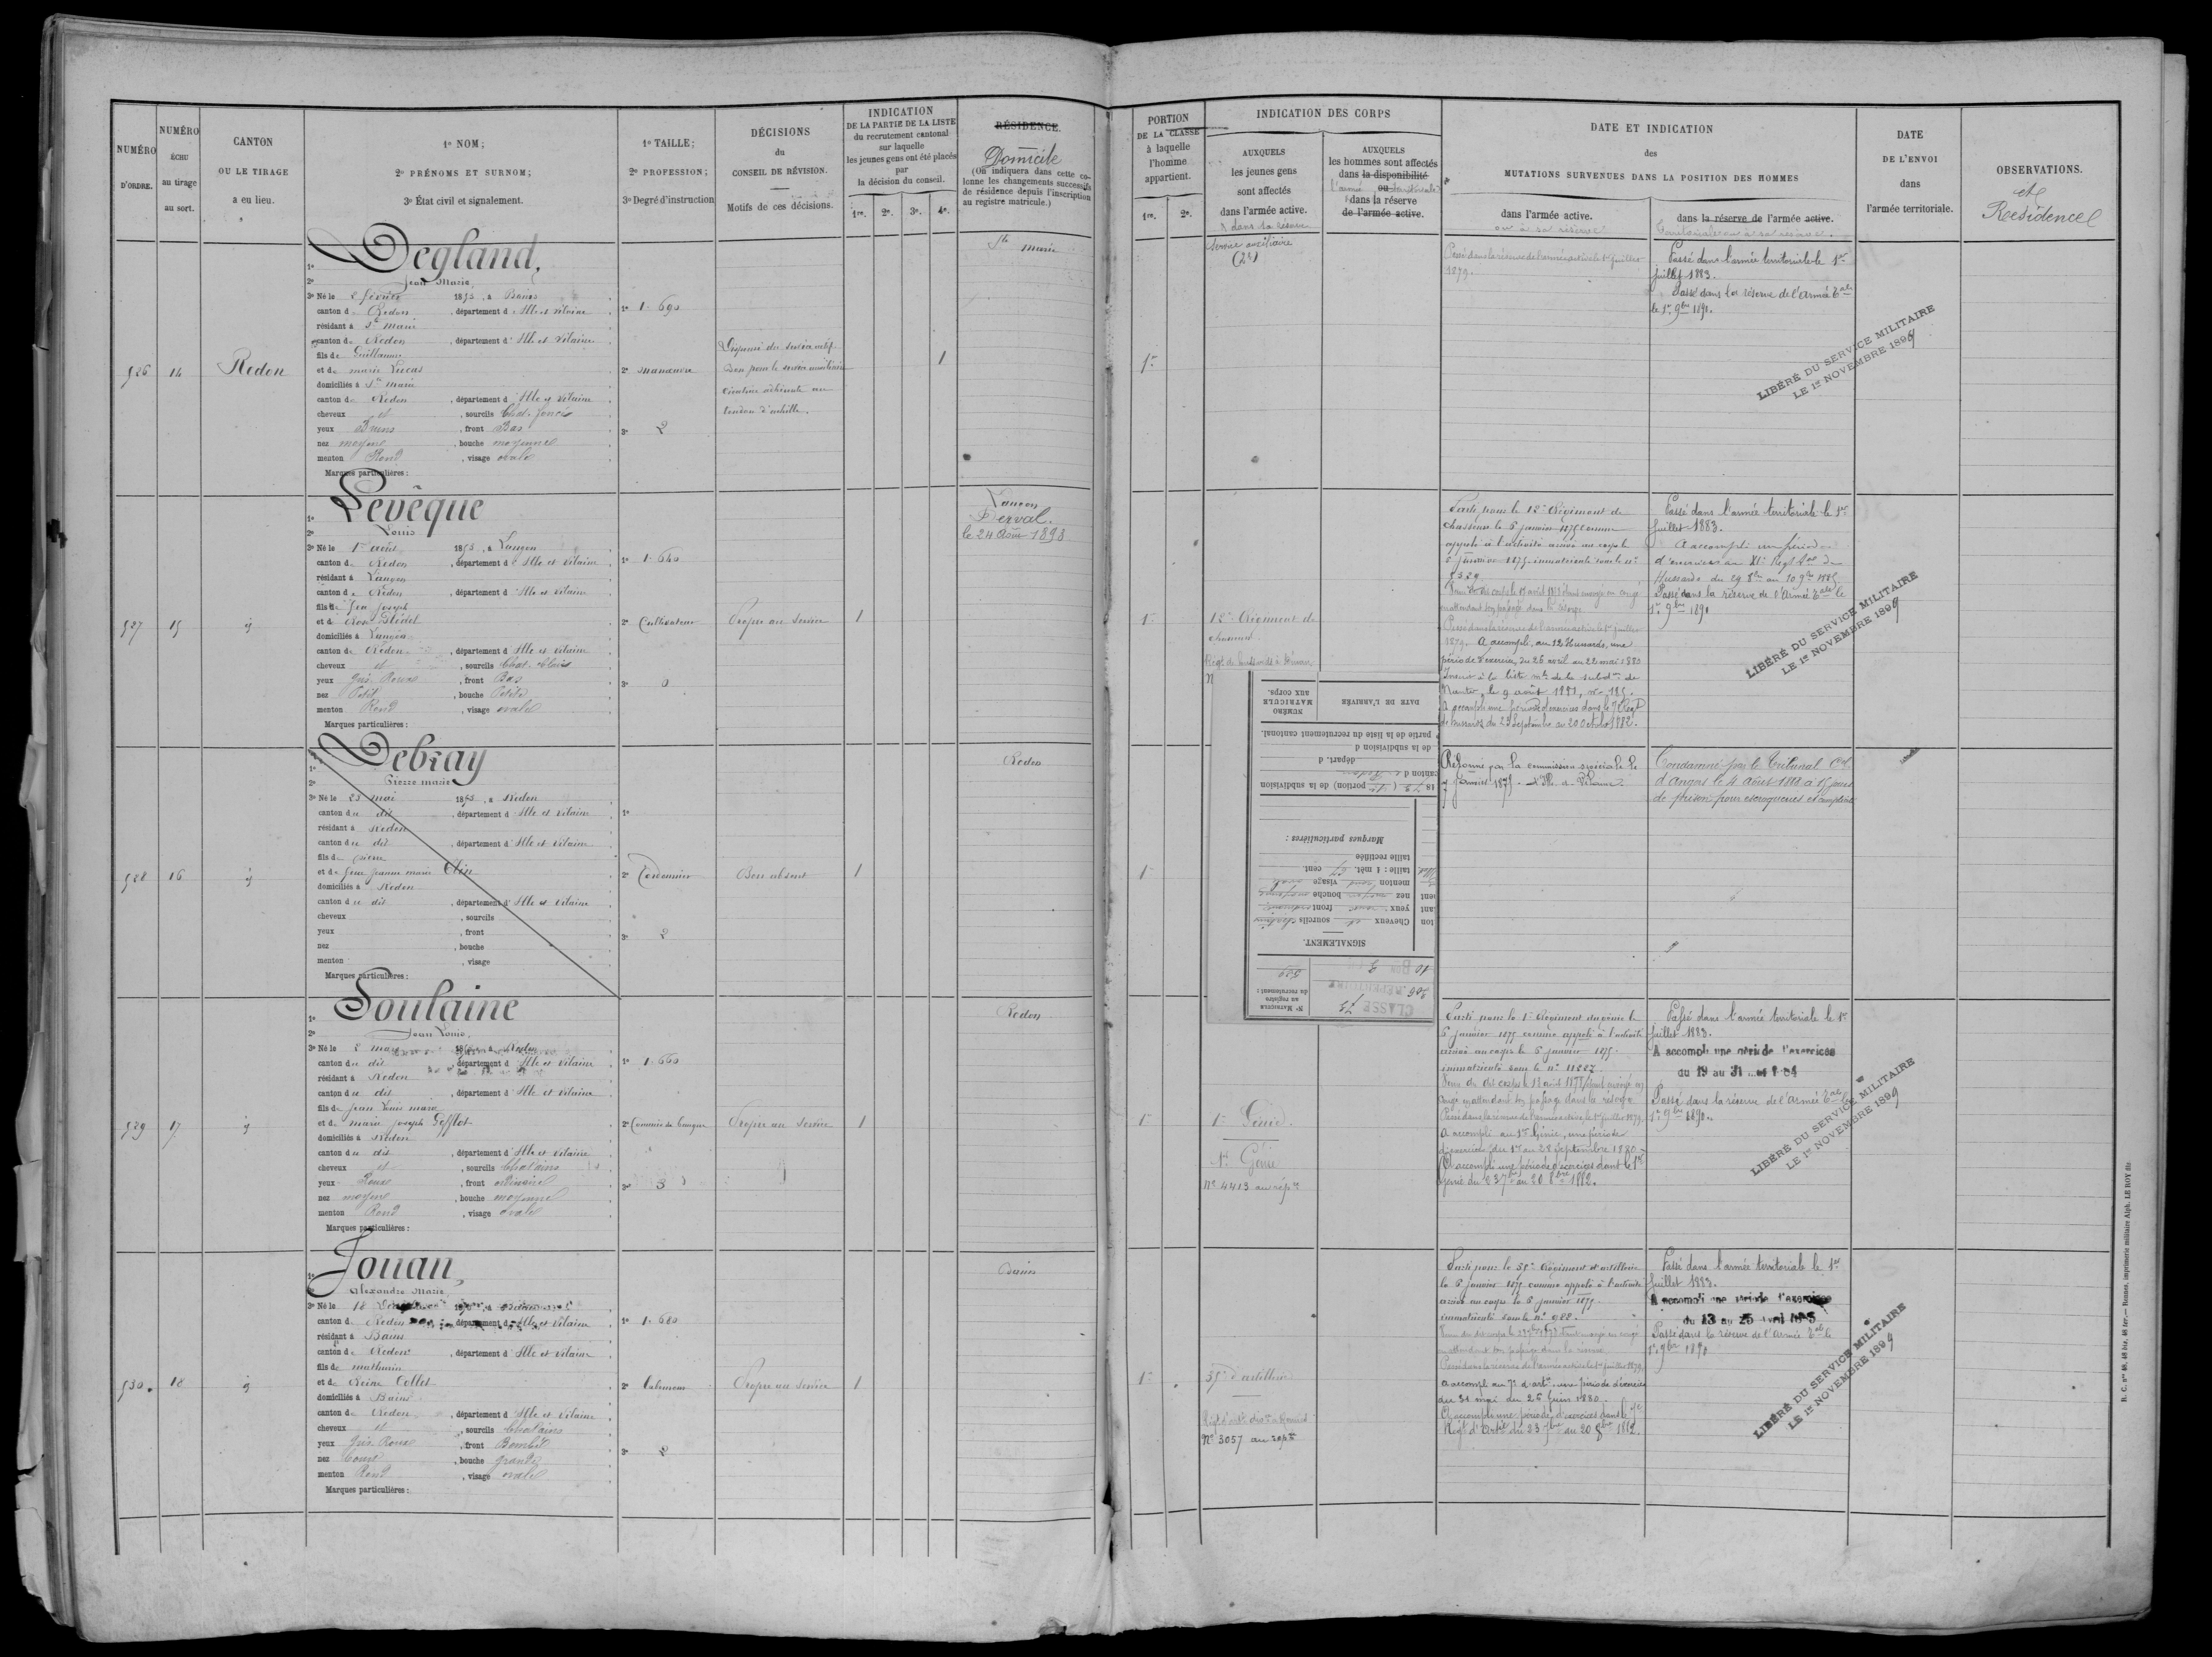 NUMÉRO D'ORDRE.
NUMÉRO ÉCHU au tirage au sort.
CANTON OU LE TIRAGE a eu lieu.
1º NOM;
2º PRÉNOMS ET SURNOM;
3º État civil et signalement.
1º TAILLE;
2º PROFESSION;
3º Degré d'instruction
DÉCISIONS
du
CONSEIL DE RÉVISION.
Motifs de ces décisions.
INDICATION
DE LA PARTIE DE LA LISTE
du recrutement cantonal
sur laquelle
les jeunes gens ont été placés
par
la décision du conseil.
1re. 2e. 3e. 4e.
RÉSIDENCE.
Domicile
(On indiquera dans cette co-
lonne les changements successifs
de résidence depuis l'inscription
au registre matricule.)
PORTION
DE LA CLASSE
à laquelle
l'homme
appartient.
1re. 2e.
INDICATION DES CORPS
AUXQUELS
les jeunes gens
sont affectés
dans l'armée active.
& dans sa réserve
AUXQUELS
les hommes sont affectés
dans la disponibilité
l'armée ou territoriale
dans la réserve
de l'armée active.
DATE ET INDICATION
des
MUTATIONS SURVENUES DANS LA POSITION DES HOMMES
dans l'armée active.
ou à sa réserve
dans la réserve de l'armée active.
territoriale ou à sa réserve.
DATE
DE L'ENVOI
dans
l'armée territoriale.
OBSERVATIONS.
et
Residence
926
14
Redon
1º Degland,
2º Jean Marie,
3º Né le 2 février 1853, à Bains
canton de Redon, département d'Ille et Vilaine
résidant à Ste Marie
canton de Redon, département d'Ille et Vilaine
fils de Guillaume
et de Marie Lucas
domiciliés à Ste Marie
canton de Redon, département d'Ille et Vilaine
cheveux et, sourcils Chat. foncés
yeux Bruns, front Bas
nez moyen, bouche moyenne
menton Rond, visage ovale
Marques particulières:
1º 1.690
2º manœuvre
3º 2
Bon pour le service auxiliaire
Cicatrice adhérente au
tendon d'achille.
1
Ste Marie
1re
Service auxiliaire
(2e)
Passé dans la réserve de l'armée active le 1er juillet
1879.
Passé dans l'armée territoriale le 1er
Juillet 1883.
Passé dans la réserve de l'Armée Tale
le 1er 9bre 1890.
LIBÉRÉ DU SERVICE MILITAIRE
LE 1er NOVEMBRE 1899
927
15
id
1º Levêque
2º Louis
3º Né le 1er août 1853, à Langon
canton de Redon, département d'Ille et Vilaine
résidant à Langon
canton de Redon, département d'Ille et Vilaine
fils de feu Joseph
et de Rose Blédel
domiciliés à Langon
canton de Redon, département d'Ille et Vilaine
cheveux et, sourcils Chat. clairs
yeux Gris Roux, front Bas
nez Petit, bouche Petite
menton Rond, visage ovale
Marques particulières:
1º 1.640
2º Cultivateur
3º 0
Propre au service
1
Langon
Derval.
le 24 Août 1893
1re
12e Régiment de
chasseurs
Parti pour le 12e Régiment de
chasseurs le 5 janvier 1875 comme
appelé à l'activité arrivé au corps le
immatriculé sous le no
Passé dans la réserve de l'armée active le 1er juillet
1879. A accompli, au 12 Hussards, une
période d'exercices, du 26 avril au 22 mai 1880
Inscrit à la liste mle de la subdon de
Nantes, le 9 août 1881, no 185.
A accompli une période d'exercices dans le 9e Regt
de hussards du 23 Septembre au 20 octobre 1882.
Passé dans l'armée territoriale le 1er
Juillet 1883.
A accompli une période
d'exercices au XIe Regt
Hussards du 29 8bre au 10 9bre 1885
Passé dans la réserve de l'Armée Tale le
1er 9bre 1890
LIBÉRÉ DU SERVICE MILITAIRE
LE 1er NOVEMBRE 1899
NUMÉRO MATRICULE AUX CORPS.
DATE DE L'ARRIVÉE
partie de la liste du recrutement cantonal.
de la subdivision d
départ. d
canton d
1873 (1re portion) de la subdivision
Marques particulières:
taille rectifiée
taille: 1 mèt. 67 cent.
menton rond visage ovale
nez moyen bouche moyenne
yeux roux front ordinaire
Cheveux et sourcils châtains
SIGNALEMENT.
No MATRICULE au registre du recrutement:
CLASSE 73
RÉPERTOIRE
928
16
id
1º Debray
2º Pierre Marie
3º Né le 23 mai 1853, à Redon
canton du dit, département d'Ille et Vilaine
résidant à Redon
canton du dit, département d'Ille et Vilaine
fils de Pierre
et de feue Jeanne Marie Olin
domiciliés à Redon
canton du dit, département d'Ille et Vilaine
cheveux, sourcils
yeux, front
nez, bouche
menton, visage
Marques particulières:
1º
2º Cordonnier
3º 2
Bon absent
1
Redon
1re
Réformé par la commission spéciale le
7 janvier 1875.
Condamné par le Tribunal Cel
d'Angers le 4 Août 1888 à 15 jours
de prison pour escroqueries et complicité
929
17
id
1º Soulaine
2º Jean Louis,
3º Né le 2 mars 1853, à Redon
canton du dit, département d'Ille et Vilaine
résidant à Redon
canton du dit, département d'Ille et Vilaine
fils de Jean Louis Marie
et de Marie Joseph Gefflot
domiciliés à Redon
canton du dit, département d'Ille et Vilaine
cheveux et, sourcils Chatains
yeux Roux, front ordinaire
nez moyen, bouche moyenne
menton Rond, visage ovale
Marques particulières:
1º 1.660
2º Commis de banque
3º 3
Propre au service
1
Redon
1re
1er Génie.
1er Génie
No 4413 au rép.re
Parti pour le 1er Régiment du génie le
5 janvier 1875 comme appelé à l'activité
arrivé au corps le 5 janvier 1875.
immatriculé sous le no 11227.
congé en attendant son passage dans la réserve
Passé dans la réserve de l'armée active, le 1er juillet 1879.
A accompli au 1er Génie, une période
d'exercices, du 1er au 28 Septembre 1880
A accompli une période d'exercices dans le 1er
Génie du 23 7bre au 20 8bre 1882.
Passé dans l'armée territoriale le 1er
Juillet 1883.
A accompli une période d'exercices
du 19 au 31
Passé dans la réserve de l'Armée Tale le
1er 9bre 1890.
LIBÉRÉ DU SERVICE MILITAIRE
LE 1er NOVEMBRE 1899
930.
18
id
1º Jouan,
Alexandre Marie
3º Né le 18
canton de Redon, département d'Ille et Vilaine
résidant à Bains
canton de Redon, département d'Ille et Vilaine
fils de Mathurin
et de Reine Collet
domiciliés à Bains
canton de Redon, département d'Ille et Vilaine
cheveux et, sourcils Chatains
yeux Gris Roux, front Bombé
nez Court, bouche grande
menton Rond, visage ovale
Marques particulières:
1º 1.680
2º Laboureur
3º 2
Propre au service
1
Bains
1re
35e d'artillerie
No 3057 au rép.re
Parti pour le 35e Régiment d'artillerie
le 5 janvier 1875 comme appelé à l'activité
arrivé au corps le 5 janvier 1875.
immatriculé sous le no 988.
Passé dans la réserve de l'armée active le 1er juillet 1879.
A accompli au 7e d'artie une période d'exercices
du 31 mai au 26 Juin 1880.
A accompli une période d'exercices dans le 7e
Régt d'Artie du 23 7bre au 20 8bre 1882.
Passé dans l'armée territoriale le 1er
Juillet 1883.
A accompli une période d'exercices
du 13 au 25 avril 1885
Passé dans la réserve de l'Armée Tale le
1er 9bre 1890
LIBÉRÉ DU SERVICE MILITAIRE
LE 1er NOVEMBRE 1899
R. C. nos 40, 46 bis, 46 ter. — Rennes, imprimerie militaire Alph. LE ROY fils